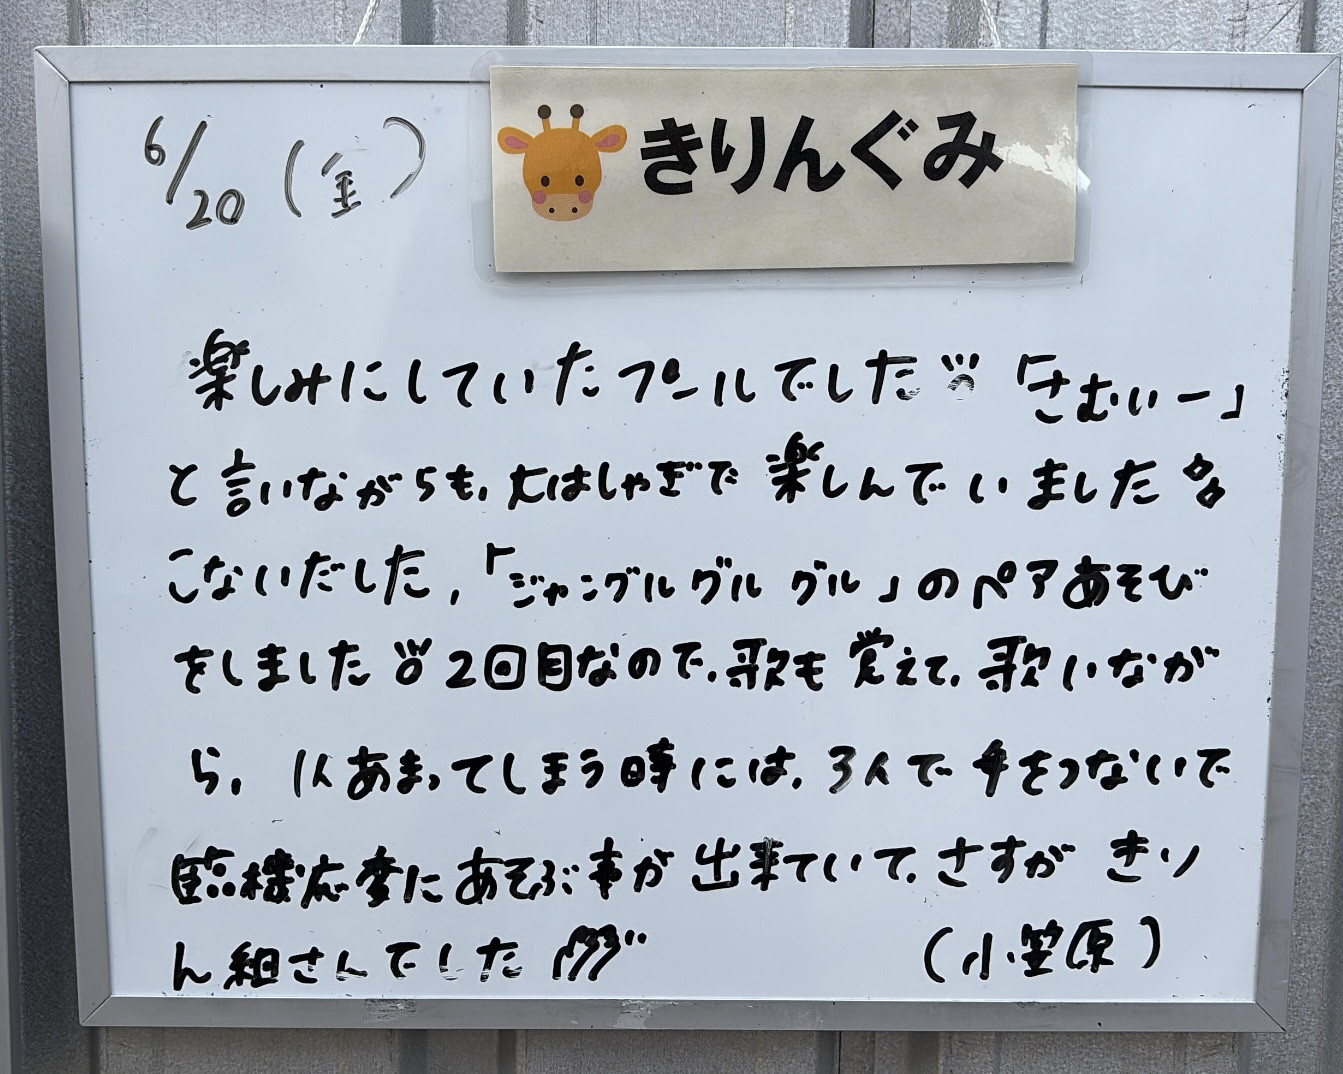 きりんぐみ
6/20(金)
楽しみにしていたプールでした 「さむぃー」
と言いながらも、大はしゃぎで 楽しんでいました
こないだした、「ジャングルグルグル」のペアあそび
をしました 2回目なので、歌も覚えて、歌いなが
ら、1人あまってしまう時には、3人で手をつないで
臨機応変にあそぶ事が出来ていて、さすが きり
ん組さんでした (小笠原)